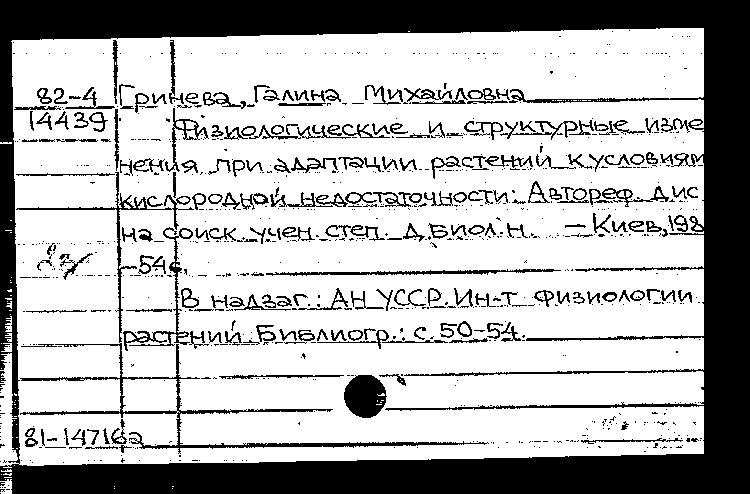 82-4 Гринева, Галина Михайловна
14439 Физиологические и структурные изме
нения при адаптации растений к условиям
кислородной недостаточности: Автореф. дис
на соиск. учен. степ. д.биол.н. — Киев, 198
-54с.
В надзаг.: АН УССР. Ин-т физиологии
растений. Библиогр.: с. 50-54.
81-147162